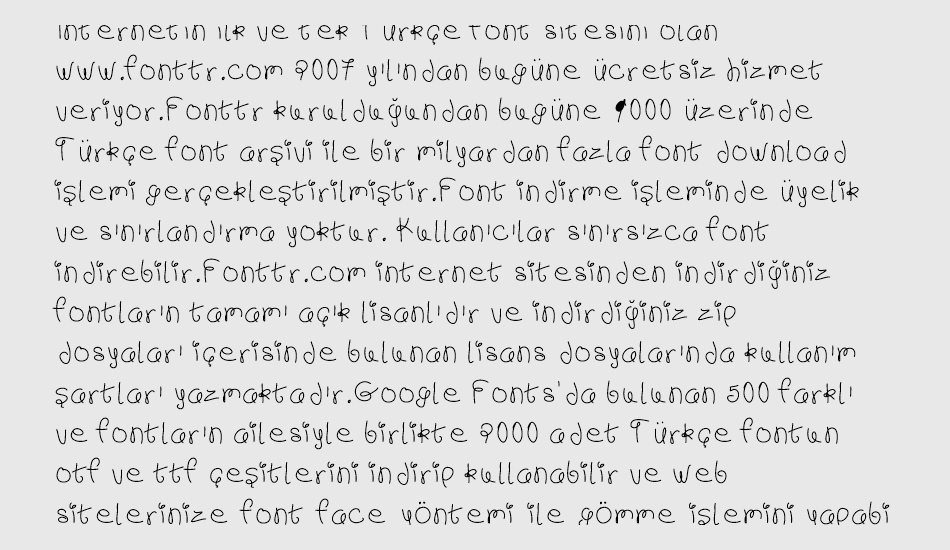 internetin ilk ve tek Türkçe font sitesini olan
www.fonttr.com 2007 yılından bugüne ücretsiz hizmet
veriyor.Fonttr kurulduğundan bugüne 9000 üzerinde
Türkçe font arşivi ile bir milyardan fazla font download
işlemi gerçekleştirilmiştir.Font indirme işleminde üyelik
ve sınırlandırma yoktur. Kullanıcılar sınırsızca font
indirebilir.Fonttr.com internet sitesinden indirdiğiniz
fontların tamamı açık lisanlıdır ve indirdiğiniz zip
dosyaları içerisinde bulunan lisans dosyalarında kullanım
şartları yazmaktadır.Google Fonts'da bulunan 500 farklı
ve fontların ailesiyle birlikte 2000 adet Türkçe fontun
otf ve ttf çeşitlerini indirip kullanabilir ve web
sitelerinize font face yöntemi ile gömme işlemini yapabi